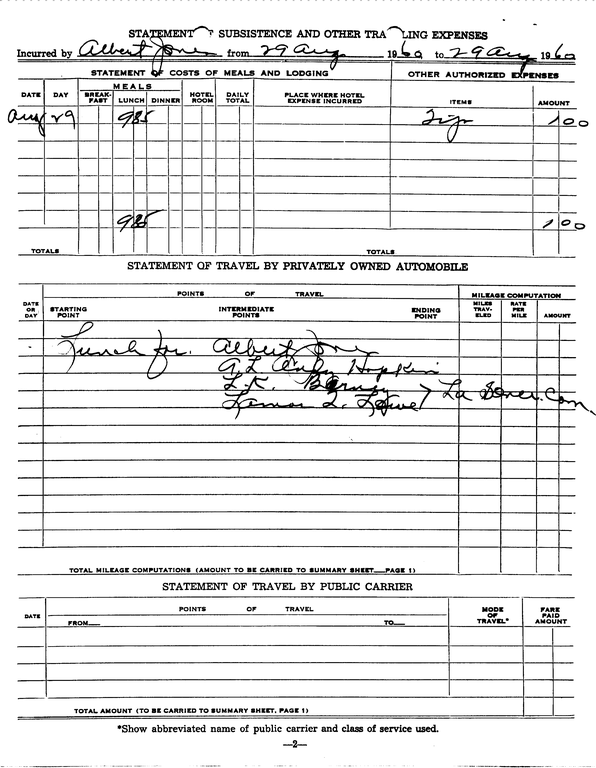 STATEMENT SUBSISTENCE AND OTHER TRA LING EXPENSES
Incurred by Albert Jones from 29 Aug 1960 to 29 Aug 1960
STATEMENT OF COSTS OF MEALS AND LODGING OTHER AUTHORIZED EXPENSES
DATE DAY MEALS BREAK-FAST LUNCH DINNER HOTEL ROOM DAILY TOTAL PLACE WHERE HOTEL EXPENSE INCURRED ITEMS AMOUNT
Aug 29 985 Tip 1 00
985 1 00
TOTALS TOTALS
STATEMENT OF TRAVEL BY PRIVATELY OWNED AUTOMOBILE
POINTS OF TRAVEL MILEAGE COMPUTATION
DATE OR DAY STARTING POINT INTERMEDIATE POINTS ENDING POINT MILES TRAV-ELED RATE PER MILE AMOUNT
Lunch for. Albert Jones
A L Hopkins
L. K.
L. La Com.
TOTAL MILEAGE COMPUTATIONS (AMOUNT TO BE CARRIED TO SUMMARY SHEET PAGE 1)
STATEMENT OF TRAVEL BY PUBLIC CARRIER
DATE POINTS OF TRAVEL MODE OF TRAVEL* FARE PAID AMOUNT
FROM TO
TOTAL AMOUNT (TO BE CARRIED TO SUMMARY SHEET, PAGE 1)
*Show abbreviated name of public carrier and class of service used.
—2—